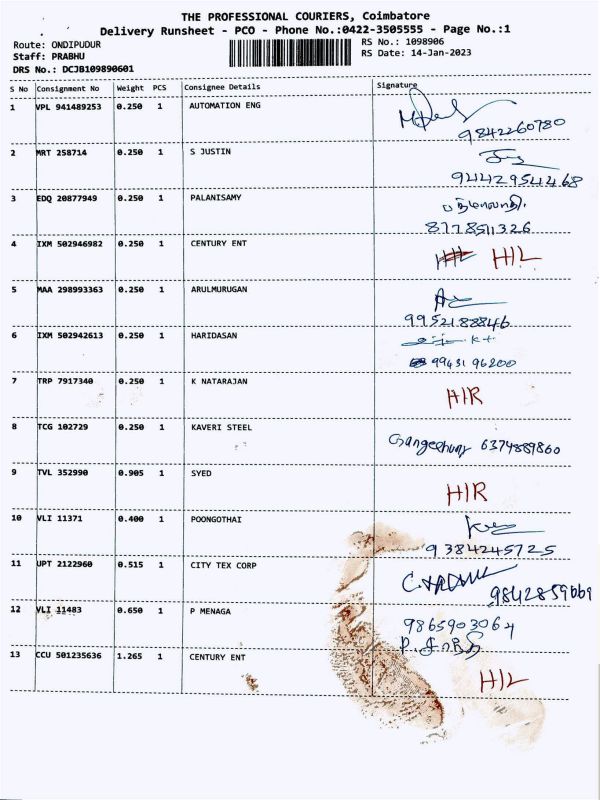 THE PROFESSIONAL COURIERS, Coimbatore
Delivery Runsheet - PCO - Phone No.:0422-3505555 - Page No.:1
Route: ONDIPUDUR
Staff: PRABHU
DRS No.: DCJB109890601
RS No.: 1098906
RS Date: 14-Jan-2023
S No Consignment No Weight PCS Consignee Details Signature
1 VPL 941489253 0.250 1 AUTOMATION ENG
9842260780
2 MRT 258714 0.250 1 S JUSTIN
9442954468
3 EDQ 20877949 0.250 1 PALANISAMY
8778511326
4 IXM 502946982 0.250 1 CENTURY ENT H/L
5 MAA 298993363 0.250 1 ARULMURUGAN
9952188846
6 IXM 502942613 0.250 1 HARIDASAN
99431 96200
7 TRP 7917340 0.250 1 K NATARAJAN H/R
8 TCG 102729 0.250 1 KAVERI STEEL 6374889860
9 TVL 352990 0.905 1 SYED H/R
10 VLI 11371 0.400 1 POONGOTHAI
9384245725
11 UPT 2122960 0.515 1 CITY TEX CORP
9842859669
12 VLI 11483 0.650 1 P MENAGA 9865903064
13 CCU 501235636 1.265 1 CENTURY ENT H/L